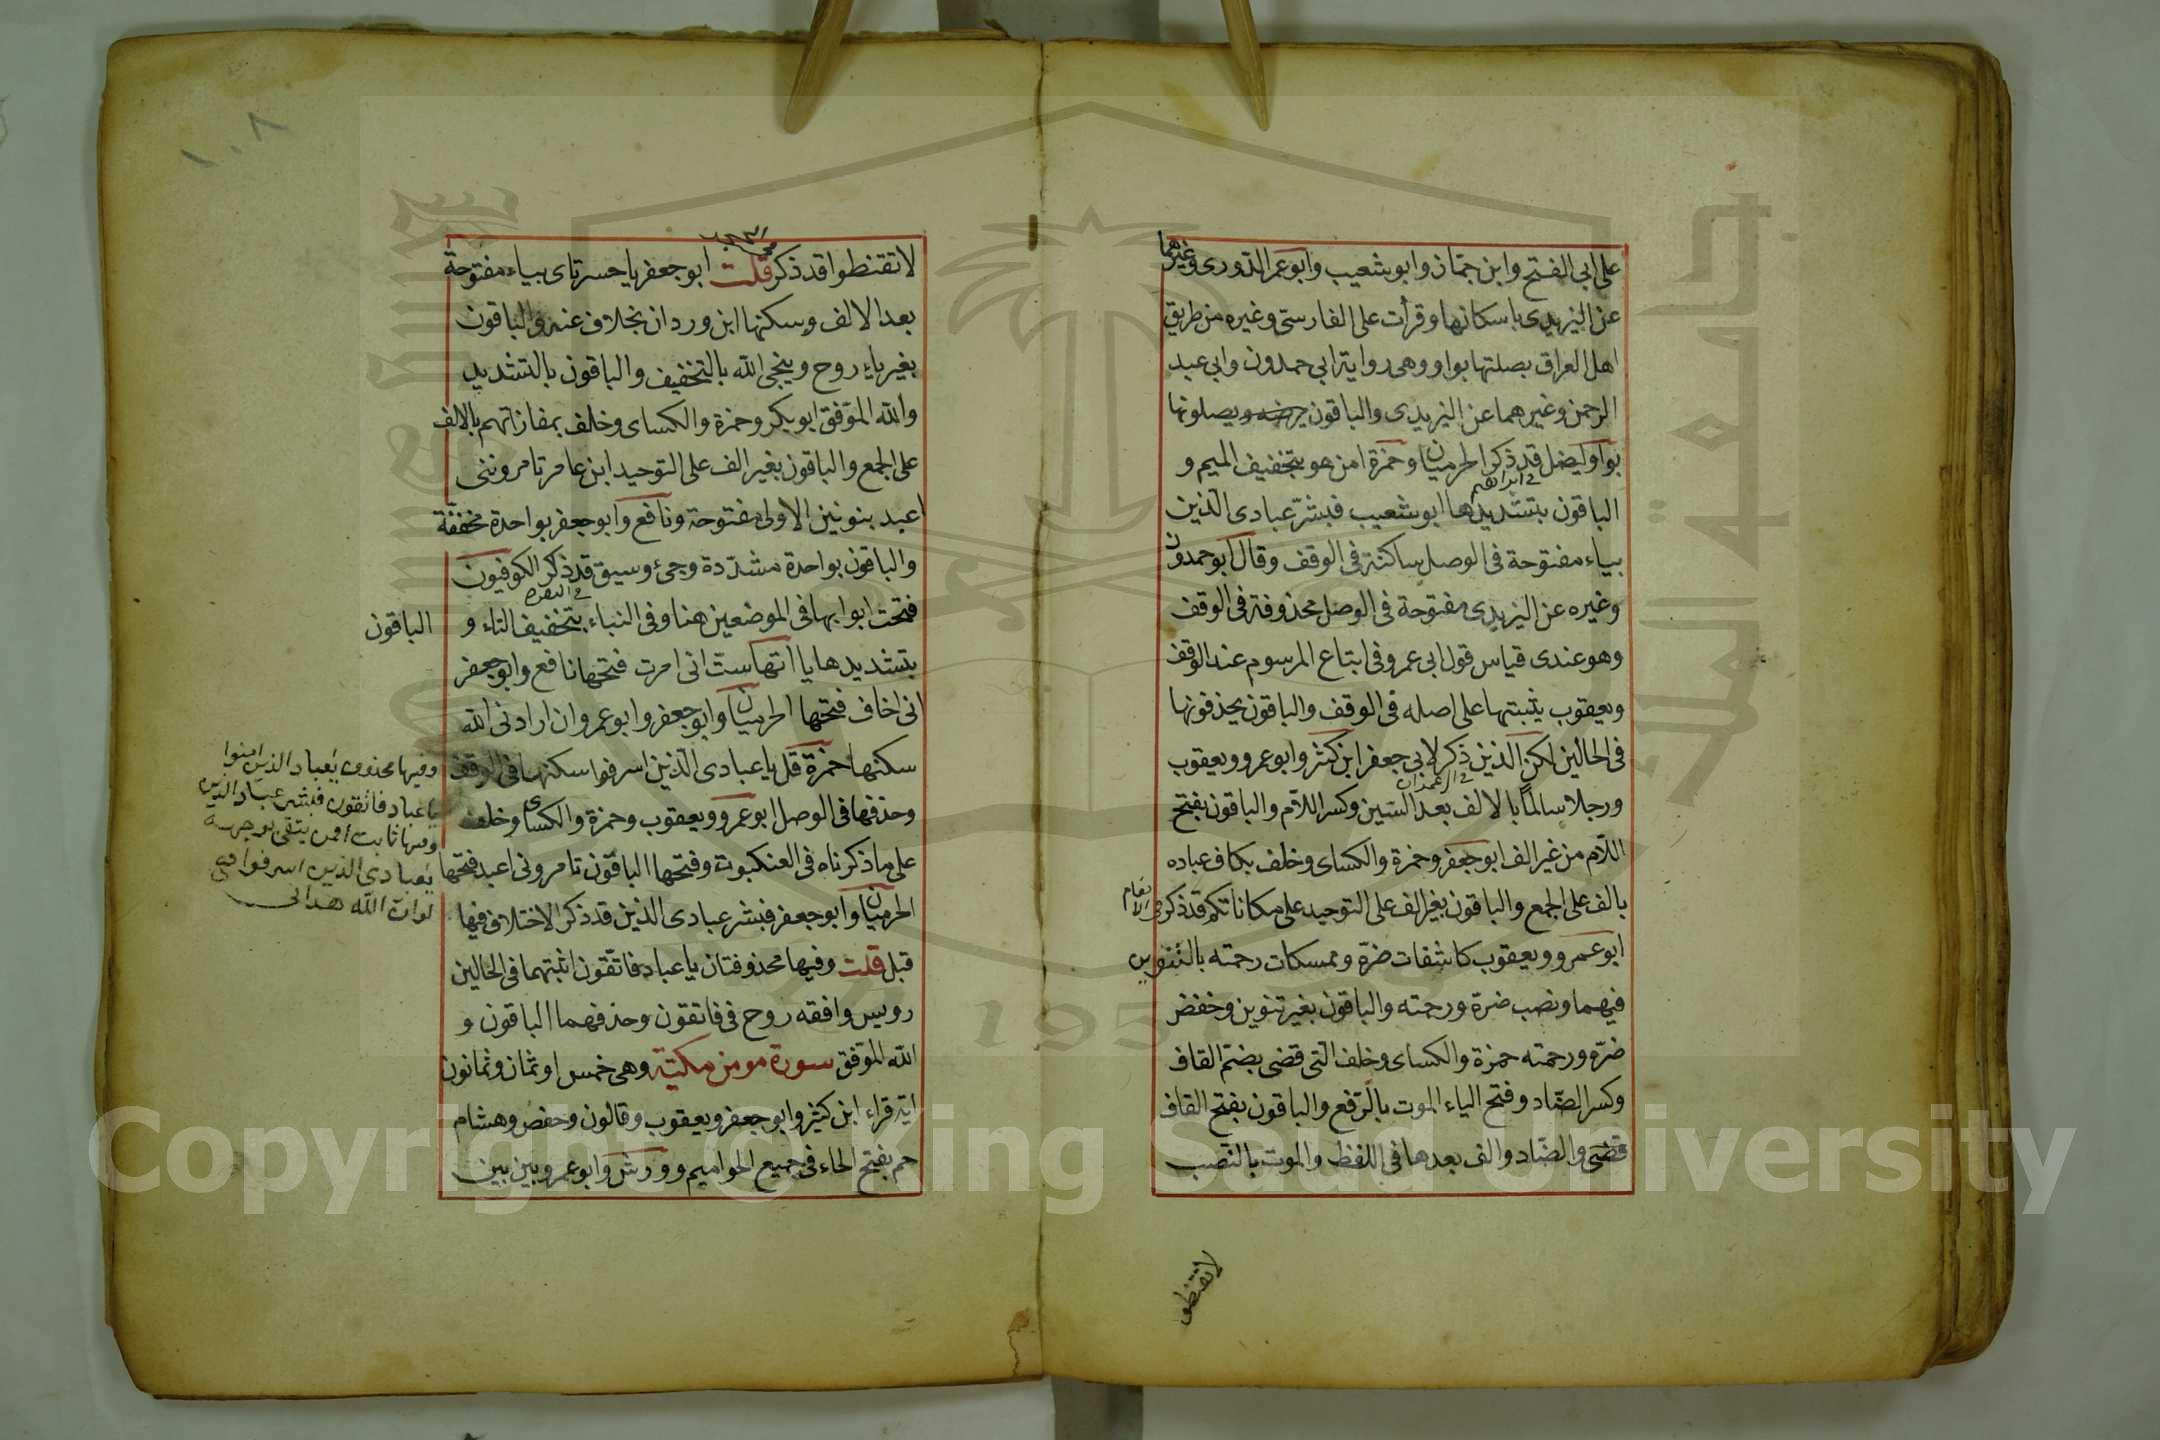 على ابى الفتح وابن جمّاز وابو شعيب وابو عمر الدّورى وغيرهما
عن اليزيدى باسكانها وقرأت على الفارسى وغيره من طريق
اهل العراق بصلتها بواو وهى رواية ابى حمدون وابى عبد
الرحمن وغيرهما عن اليزيدى والباقون يصلونها
بواو ليضل قد ذكر الحرميان وحمزة امن هو بتخفيف الميم و
فى ابراهيم
الباقون بتشديدها ابو شعيب فبشّر عبادى الّذين
بياء مفتوحة فى الوصل ساكنة فى الوقف وقال ابو حمدون
وغيره عن اليزيدى مفتوحة فى الوصل محذوفة فى الوقف
وهو عندى قياس قول ابى عمرو فى ابتاع المرسوم عند الوقف
ويعقوب يثبتها على اصله فى الوقف والباقون يحذفونها
فى الحالين لكن الذين ذكر لابى جعفر ابن كثير وابو عمرو ويعقوب
ورجلا سالماً بالالف بعد السّين وكسر اللاّم والباقون بفتح
اللّام من غير الف ابو جعفر وحمزة والكساى وخلف بكاف عباده
بالف على الجمع والباقون بغير الف على التوحيد على مكاناتكم قد ذكر فى الانعام
ابو عمرو ويعقوب كاشفات ضرّه وممسكات رحمته بالتنوين
فيهما ونصب ضرّه ورحمته والباقون بغير تنوين وخفض
ضرّه ورحمته حمزة والكساى وخلف الّتى قضى بضمّ القاف
وكسر الضّاد وفتح الياء الموت بالّرفع والباقون بفتح القاف
قضى والضّاد والف بعدها فى اللفظ والموت بالنّصب
لا تقنطوا
١٠٨
لا تقنطوا قد ذكر قلت ابو جعفر يا حسرتاى بياء مفتوحة
بعد الالف وسكنها ابن وردان بخلاف عنه والباقون
بغير ياء روح وينجى الله بالتخفيف والباقون بالتشديد
والله الموّفق ابو بكر وحمزة والكساى وخلف بمفازاتهم بالالف
على الجمع والباقون بغير الف على التوحيد ابن عامر تامروننى
اعبد بنونين الاولى مفتوحة ونافع وابو جعفر بواحدة مخففّة
والباقون بواحدة مشدّدة وجىء وسيق قد ذكر الكوفيون
فى البقرة
فتحت ابوابها فى الموضعين هنا وفى النباء بتخفيف التاء و الباقون
بتشديدها ياآتها ستّ انى امرت فتحها نافع وابو جعفر
انى اخاف فتحها الحرميان وابو جعفر وابو عمرو ان ارادنى الله
سكنها حمزة قل يا عبادى الّذين اسرفوا سكنها فى الوقف
وحذفها فى الوصل ابو عمرو ويعقوب وحمزة والكساى وخلف
على ما ذكرناه فى العنكبوت وفتحها الباقون تامرونى اعبد فتحها
الحرميان وابو جعفر فبشر عبادى الذين قد ذكر الاختلاف فيها
قبل قلت وفيها محذوفتان يا عباد فاتّقون اثبتهما فى الحالين
رويس وافقه روح فى فاتقون وحذفهما الباقون و
الله الموّفق سورة مومن مكيّة وهى خمس او ثمان وثمانون
اية قراء ابن كثير وابو جعفر ويعقوب وقالون وحفص وهشام
حم بفتح الحاء فى جميع الحواميم وورش وابو عمرو بين بين
وفيها محذوف يٰعباد الذين امنوا
يا عباد فاتقون فبشر عباد الذين
وفيها ثابت افمن يتقى بوجهه
يٰعبادى الذين اسرفوا
لو ان الله هدانى
جامعة الملك سعود
195
Copyright © King Saud University